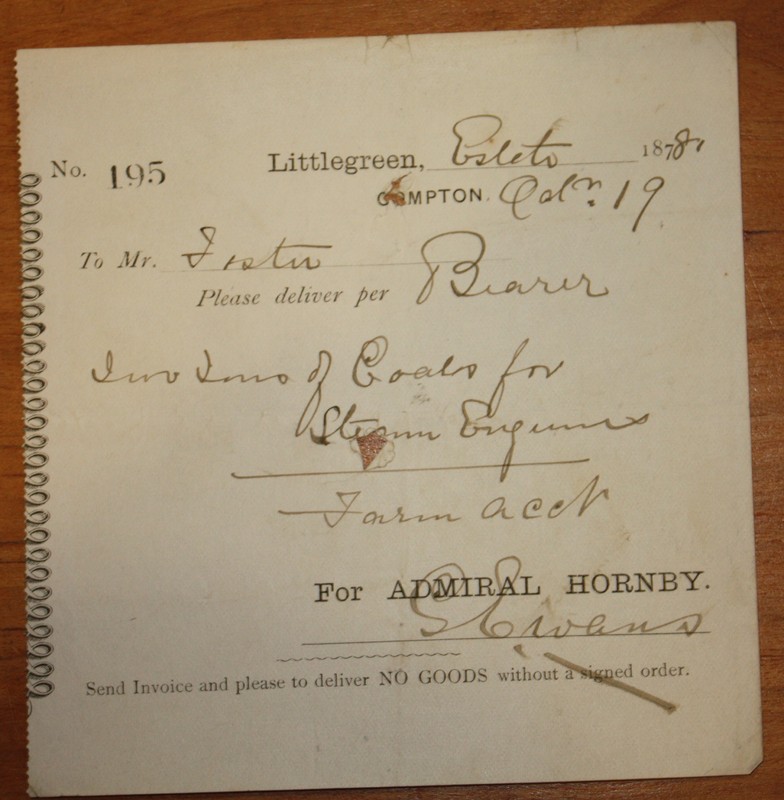 No. 195 Littlegreen, Estate 1878
COMPTON. Octr. 19
To Mr. Foster
Please deliver per Bearer
Two Tons of Coals for
Steam Engines
Farm acct
For ADMIRAL HORNBY.
Evans
Send Invoice and please to deliver NO GOODS without a signed order.